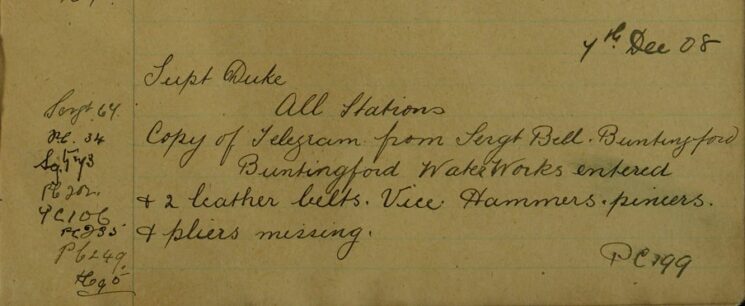 7th Dec 08
Supt Duke
All Stations
Copy of Telegram from Sergt Bell. Buntingford
Buntingford WaterWorks entered
& 2 leather belts. Vice Hammers. pincers.
& pliers missing.
PC 299
Sergt 64
PC. 34
PC 202
PC 106
PC 235
PC 249